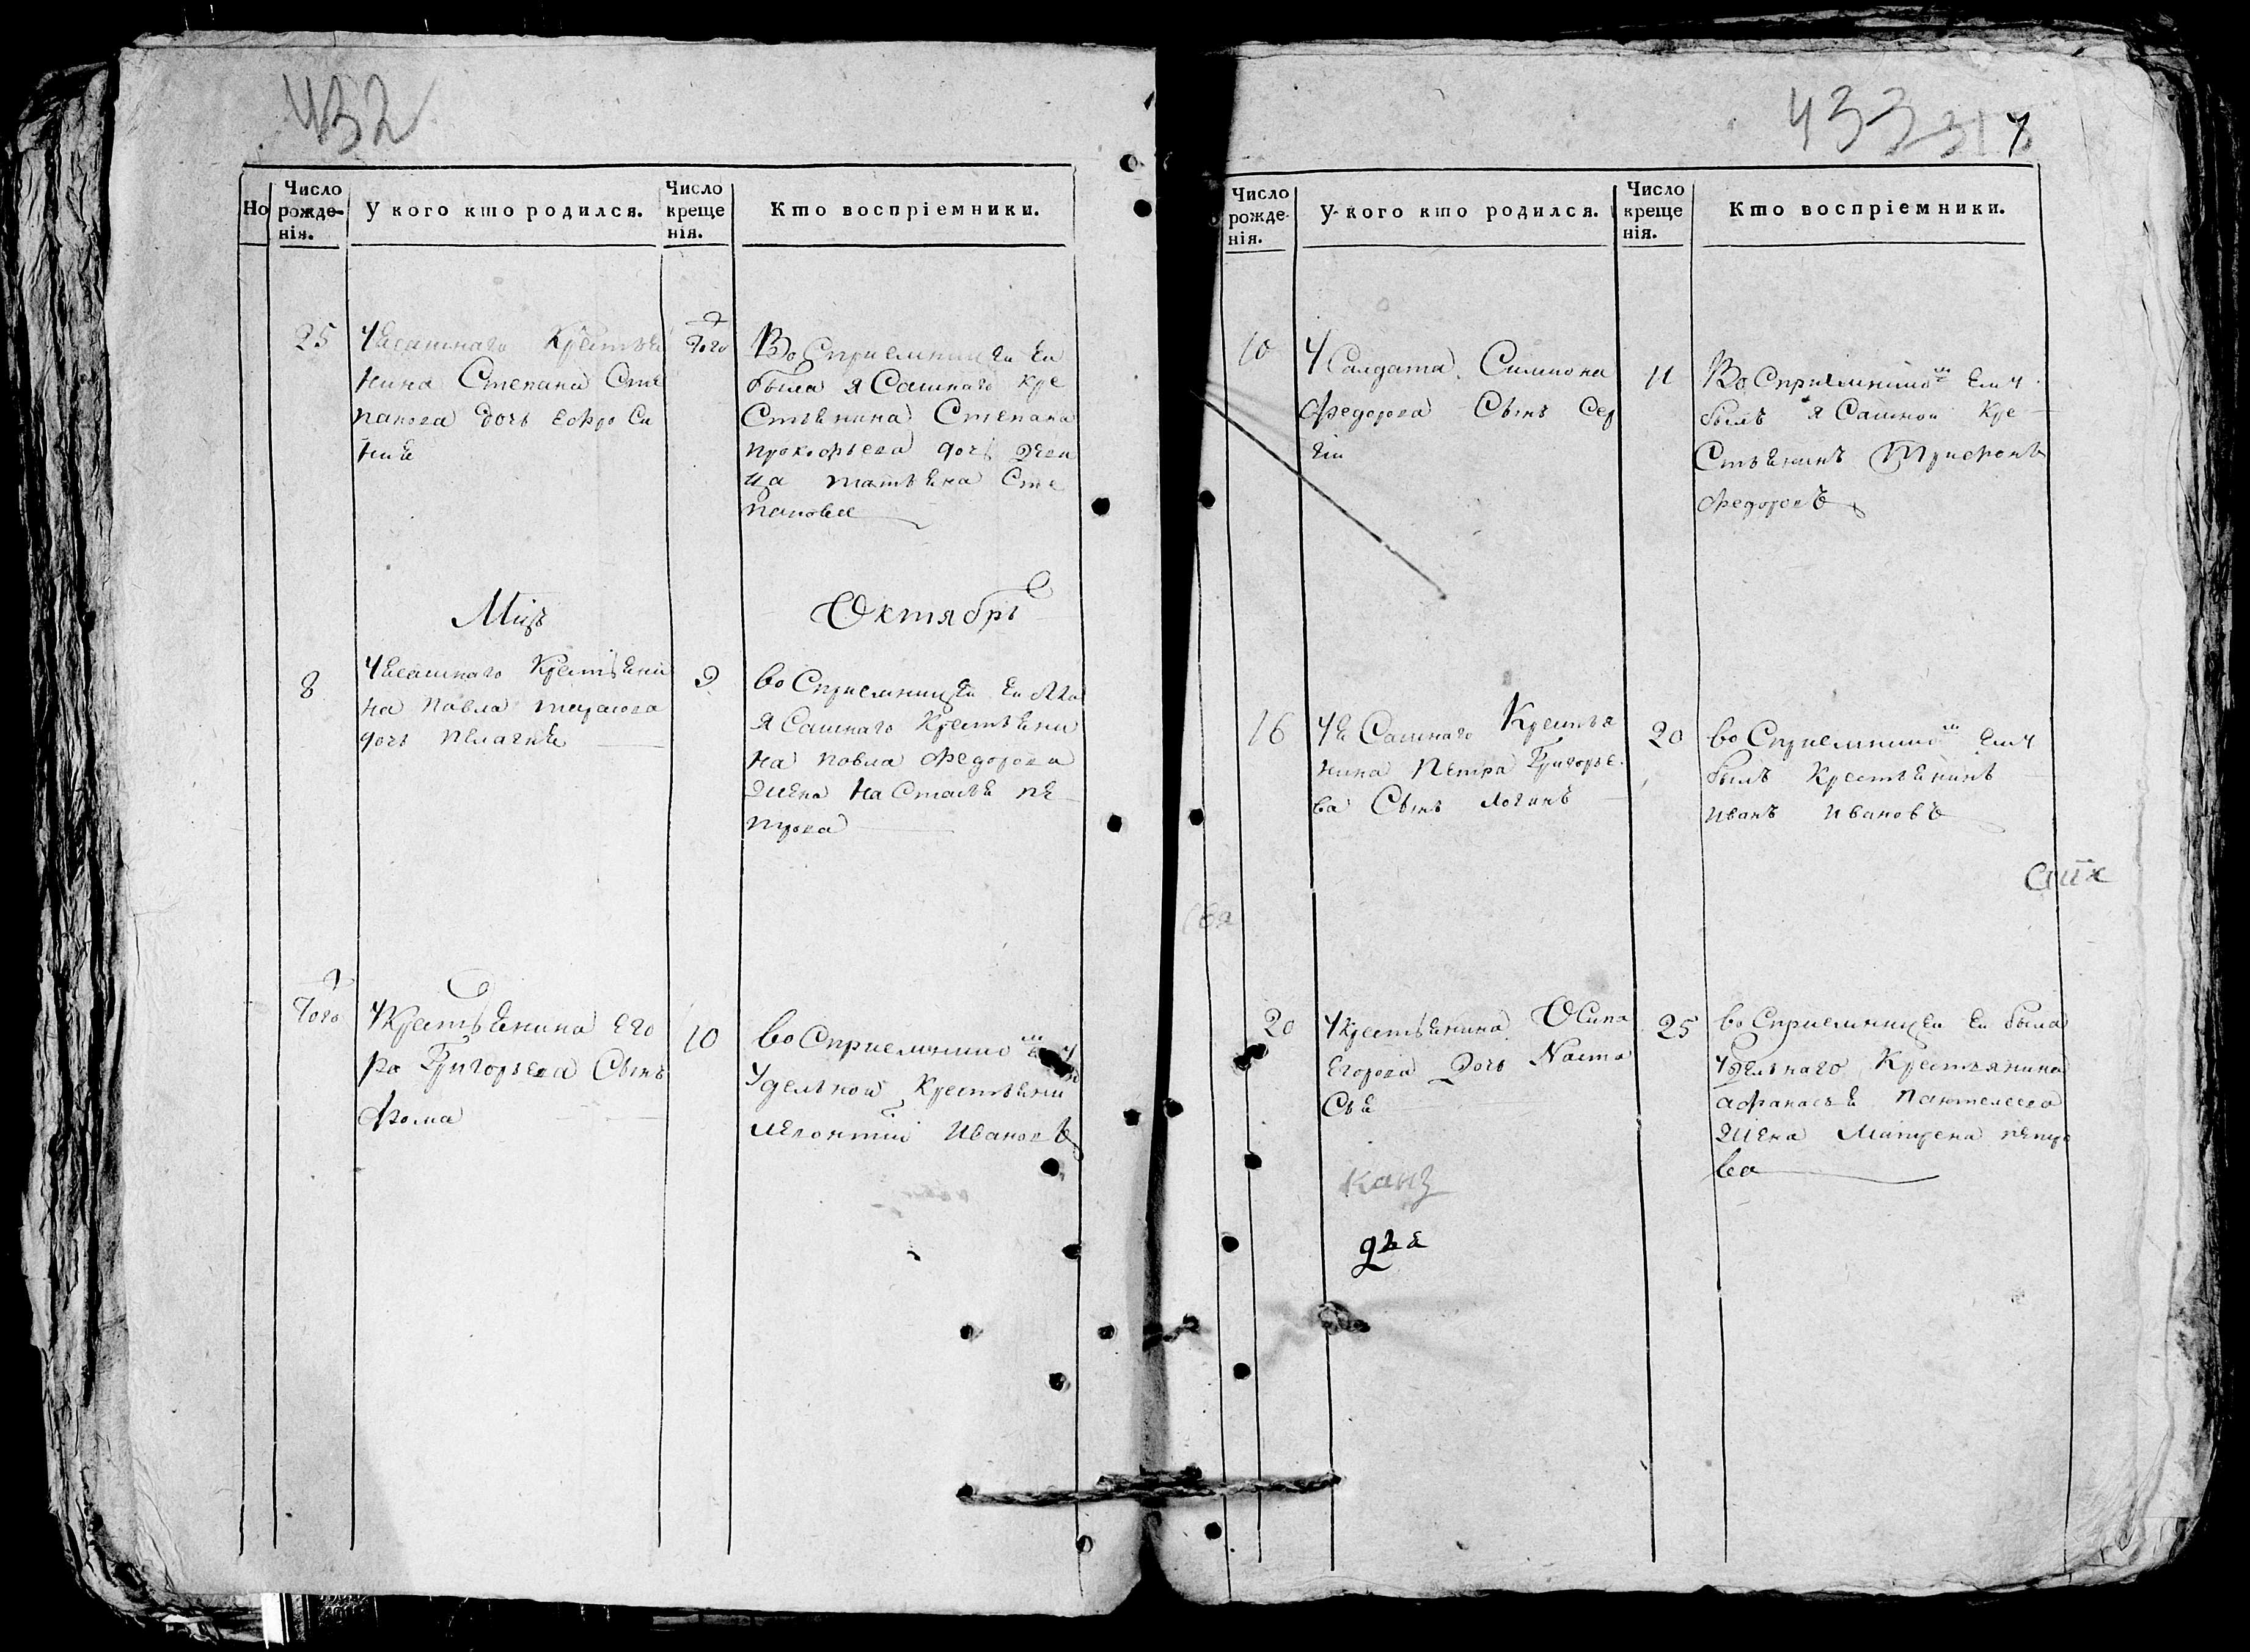 432
Но
Число рожде- нія.
У кого кто родился.
Число креще нія.
Кто воспріемники.
25
У Ясашнаго Крестьѣ
нина Степана Сте
панова дочь Ефро Си
ниѣ
Того
Во Сприемницеи Еи
была я Сашнаго Кре
Стьѣнина Степана
прокофьева дочь Деви
ца татьѣна Сте
панова
Мцъ
Октябрь
8
У Ѣсашнаго Крестьѣни
на павла тарасова
дочь пелагиѣ
9
во Сприемницеи Еи была
я Сашнаго Крестьѣни
на павла Федорова
жена на Стасьѣ пе
трова
Того
У Крестьѣнина Его
ра Григорьева Сынъ
Фома
10
во Сприемнико
Удельной Крестьѣни
леонтіи Ивановъ
433
317
Число рожде- нія.
У кого кто родился.
Число креще нія.
Кто воспріемники.
10
У Салдата Симиона
Федорова Сынъ Сер
гѣи
11
Во Сприемнико м Ему
былъ я Сашнои Кре
Стьѣнинъ Трифонъ
Федоровъ
16
У ѣ Сашнаго Крестья
нина Петра Григорье
ва Сынъ Логинъ
20
во Сприемнико м Ему
былъ Крестьѣнинъ
иванъ ивановъ
20
У Крестьѣнина Осипа
Егорова Дочь Наста
Сьѣ
25
во Сприемницеи Еи была
Удельнаго Крестьянина
афанасьѣ пантелеева
жена Матрена петро
ва
двѣ